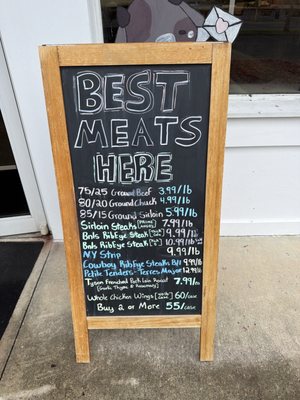 BEST
MEATS
HERE
75/25 Ground Beef 3.99/lb
80/20 Ground Chuck 4.99/lb
85/15 Ground Sirloin 5.99/lb
Sirloin Steaks 7.99/lb
Bnls RibEye Steak 9.99/lb
Bnls RibEye Steak 10.99/lb
NY Strip 9.99/lb
Cowboy RibEye Steak B/I 9.99/lb
Petite Tenders - Teres Major 12.99/lb
Tyson Frenched Pork Loin Roast 7.99/lb
(Garlic Thyme & Rosemary)
Whole Chicken Wings 60/case
Buy 2 or More 55/case